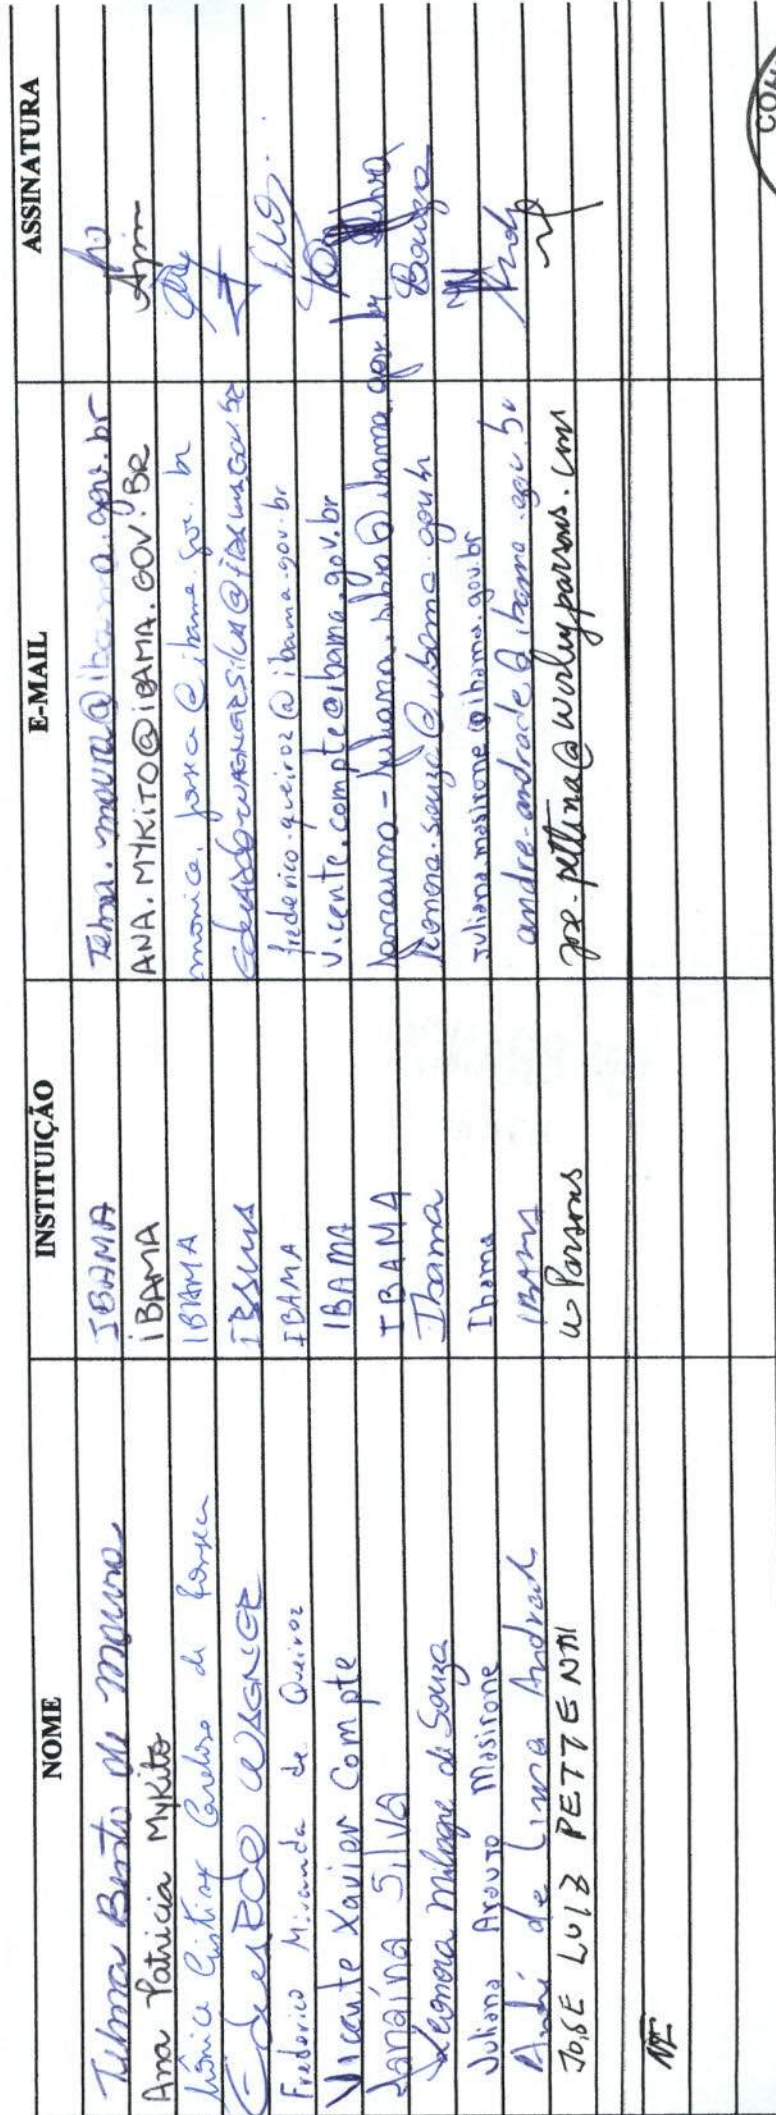 NOME INSTITUIÇÃO E-MAIL ASSINATURA
Telma Bento de Moura IBAMA Telma.moura@ibama.gov.br
Ana Patricia Mykito iBAMA ANA.MYKITO@iBAMA.GOV.BR
Mônica Cristina Cardoso da Fonseca IBAMA monica.fonseca@ibama.gov.br
WAGNER
Frederico Miranda de Queiroz IBAMA frederico.queiroz@ibama.gov.br
Vicente Xavier Compte IBAMA Vicente.compte@ibama.gov.br
Janaína Silva IBAMA janaina-juliana.silva@ibama.gov.br
Leonora Milagre de Souza Ibama leonora.souza@ibama.gov.br Souza
Juliana Araujo Masirone Ibama juliana.masirone@ibama.gov.br
André de Lima Andrade IBAMA andre-andrade@ibama.gov.br
JOSE LUIZ PETTENATI W Parsons @worleyparsons.com